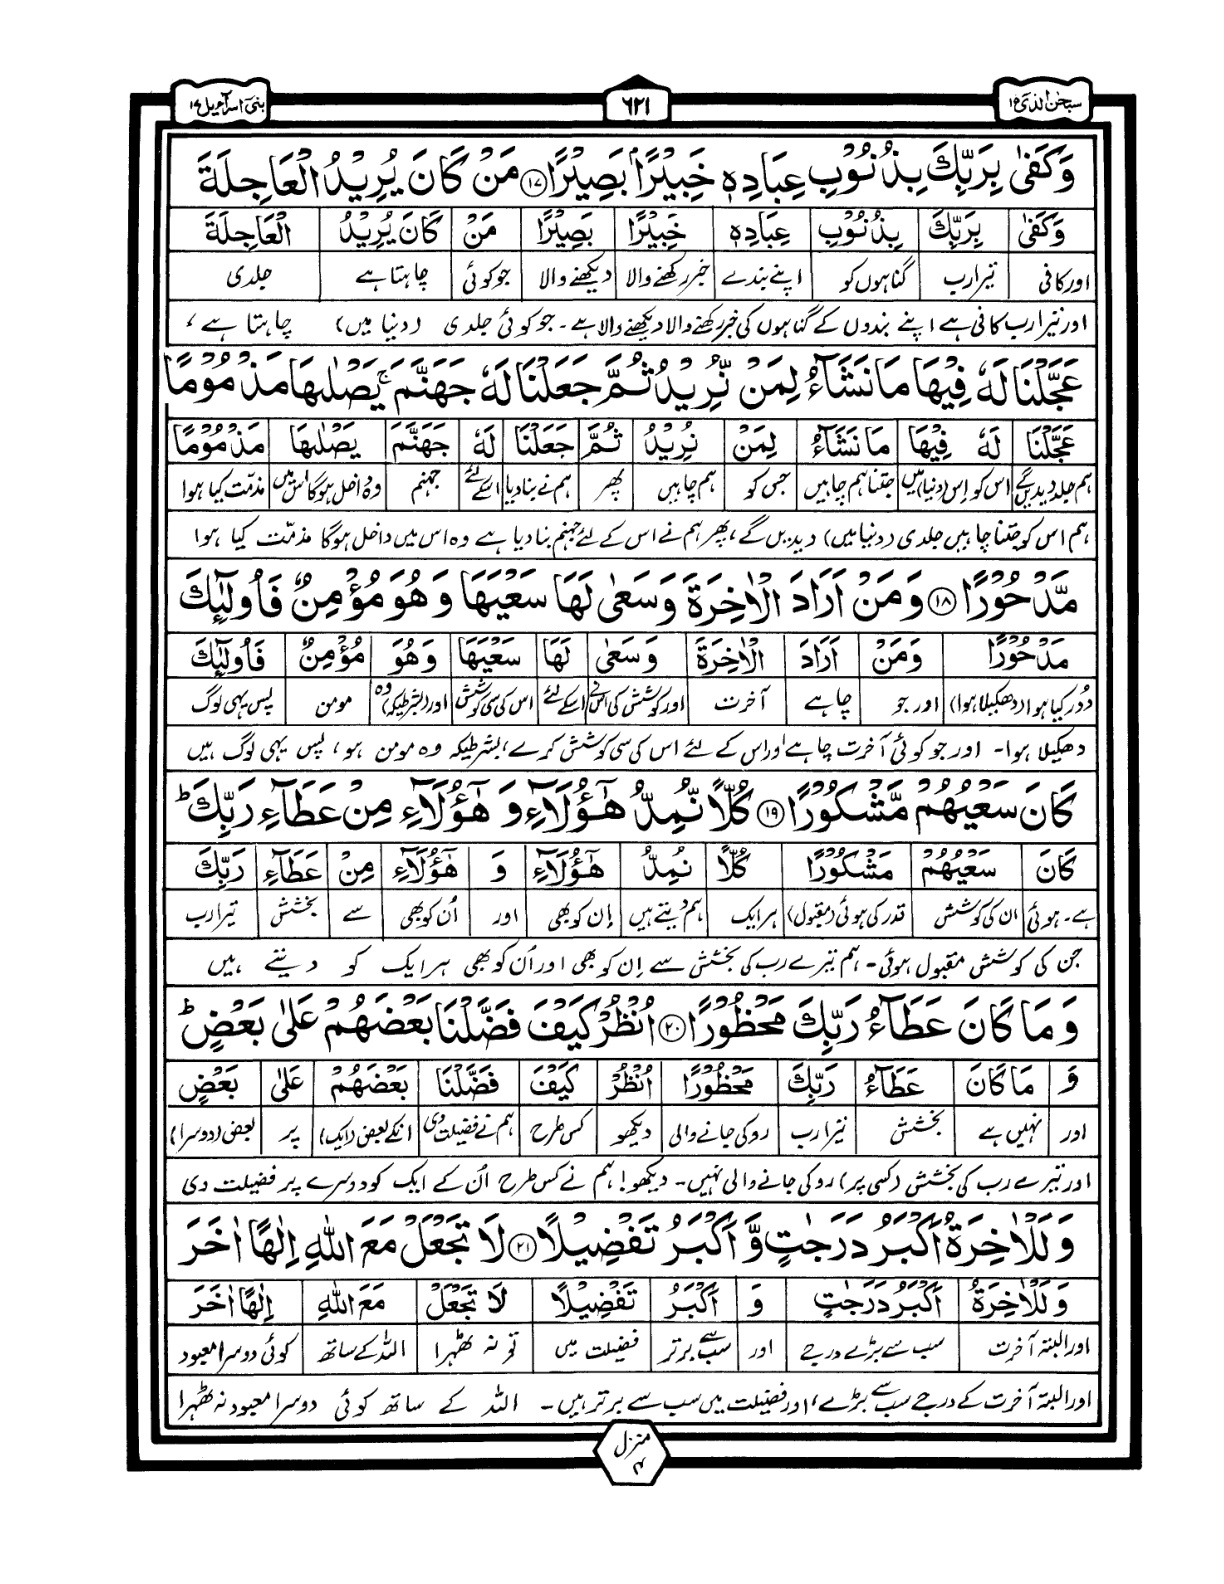 سبحٰن الذی ۱۵
۶۲۱
بنی اسرآءیل ۱۷
وَكَفٰى بِرَبِّكَ بِذُنُوْبِ عِبَادِهٖ خَبِيْرًۢا بَصِيْرًا ۝۱۷ مَنْ كَانَ يُرِيْدُ الْعَاجِلَةَ
وَكَفٰى بِرَبِّكَ بِذُنُوْبِ عِبَادِهٖ خَبِيْرًا بَصِيْرًا مَنْ كَانَ يُرِيْدُ الْعَاجِلَةَ
اور کافی تیرا رب گناہوں کو اپنے بندے خبر رکھنے والا دیکھنے والا جو کوئی چاہتا ہے جلدی
اور تیرا رب کافی ہے اپنے بندوں کے گناہوں کی خبر رکھنے والا دیکھنے والا ہے۔ جو کوئی جلدی (دنیا میں) چاہتا ہے،
عَجَّلْنَا لَهٗ فِيْهَا مَا نَشَآءُ لِمَنْ نُّرِيْدُ ثُمَّ جَعَلْنَا لَهٗ جَهَنَّمَ ۚ يَصْلٰىهَا مَذْمُوْمًا
عَجَّلْنَا لَهٗ فِيْهَا مَا نَشَآءُ لِمَنْ نُرِيْدُ ثُمَّ جَعَلْنَا لَهٗ جَهَنَّمَ يَصْلٰىهَا مَذْمُوْمًا
ہم جلد دیدیں گے اس کو اس (دنیا) میں جتنا ہم چاہیں جس کو ہم چاہیں پھر ہم نے بنا دیا اسکے لئے جہنم وہ داخل ہوگا اس میں مذمت کیا ہوا
ہم اس کو جتنا چاہیں جلدی (دنیا میں) دیدیں گے، پھر ہم نے اس کے لئے جہنم بنا دیا ہے وہ اس میں داخل ہوگا مذمّت کیا ہوا
مَّدْحُوْرًا ۝۱۸ وَمَنْ اَرَادَ الْاٰخِرَةَ وَسَعٰى لَهَا سَعْيَهَا وَهُوَ مُؤْمِنٌ فَاُولٰٓئِكَ
مَدْحُوْرًا وَمَنْ اَرَادَ الْاٰخِرَةَ وَسَعٰى لَهَا سَعْيَهَا وَهُوَ مُؤْمِنٌ فَاُولٰٓئِكَ
دُور کیا ہوا (دھکیلا ہوا) اور جو چاہے آخرت اور کوشش کی اس نے اسکے لئے اس کی سی کوشش اور (بشرطیکہ) وہ مومن پس یہی لوگ
دھکیلا ہوا۔ اور جو کوئی آخرت چاہے اور اس کے لئے اس کی سی کوشش کرے، بشرطیکہ وہ مومن ہو، پس یہی لوگ ہیں
كَانَ سَعْيُهُمْ مَّشْكُوْرًا ۝۱۹ كُلًّا نُّمِدُّ هٰٓؤُلَآءِ وَ هٰٓؤُلَآءِ مِنْ عَطَآءِ رَبِّكَ ؕ
كَانَ سَعْيُهُمْ مَشْكُوْرًا كُلًّا نُمِدُّ هٰٓؤُلَآءِ وَ هٰٓؤُلَآءِ مِنْ عَطَآءِ رَبِّكَ
ہے۔ ہوئی ان کی کوشش قدر کی ہوئی (مقبول) ہر ایک ہم دیتے ہیں اِن کو بھی اور اُن کو بھی سے بخشش تیرا رب
جن کی کوشش مقبول ہوئی۔ ہم تیرے رب کی بخشش سے اِن کو بھی اور اُن کو بھی ہر ایک کو دیتے ہیں
وَمَا كَانَ عَطَآءُ رَبِّكَ مَحْظُوْرًا ۝۲۰ اُنْظُرْ كَيْفَ فَضَّلْنَا بَعْضَهُمْ عَلٰى بَعْضٍ ؕ
وَ مَا كَانَ عَطَآءُ رَبِّكَ مَحْظُوْرًا اُنْظُرْ كَيْفَ فَضَّلْنَا بَعْضَهُمْ عَلٰى بَعْضٍ
اور نہیں ہے بخشش تیرا رب روکی جانے والی دیکھو کس طرح ہم نے فضیلت دی انکے بعض (ایک) پر بعض (دوسرا)
اور تیرے رب کی بخشش (کسی پر) روکی جانے والی نہیں۔ دیکھو! ہم نے کس طرح اُن کے ایک کو دوسرے پر فضیلت دی
وَلَلْاٰخِرَةُ اَكْبَرُ دَرَجٰتٍ وَّ اَكْبَرُ تَفْضِيْلًا ۝۲۱ لَا تَجْعَلْ مَعَ اللّٰهِ اِلٰهًا اٰخَرَ
وَلَلْاٰخِرَةُ اَكْبَرُ دَرَجٰتٍ وَ اَكْبَرُ تَفْضِيْلًا لَا تَجْعَلْ مَعَ اللّٰهِ اِلٰهًا اٰخَرَ
اور البتہ آخرت سب سے بڑے درجے اور سب سے برتر فضیلت میں تو نہ ٹھہرا اللہ کے ساتھ کوئی دوسرا معبود
اور البتہ آخرت کے درجے سب سے بڑے، اور فضیلت میں سب سے برتر ہیں۔ اللہ کے ساتھ کوئی دوسرا معبود نہ ٹھہرا
منزل
۴